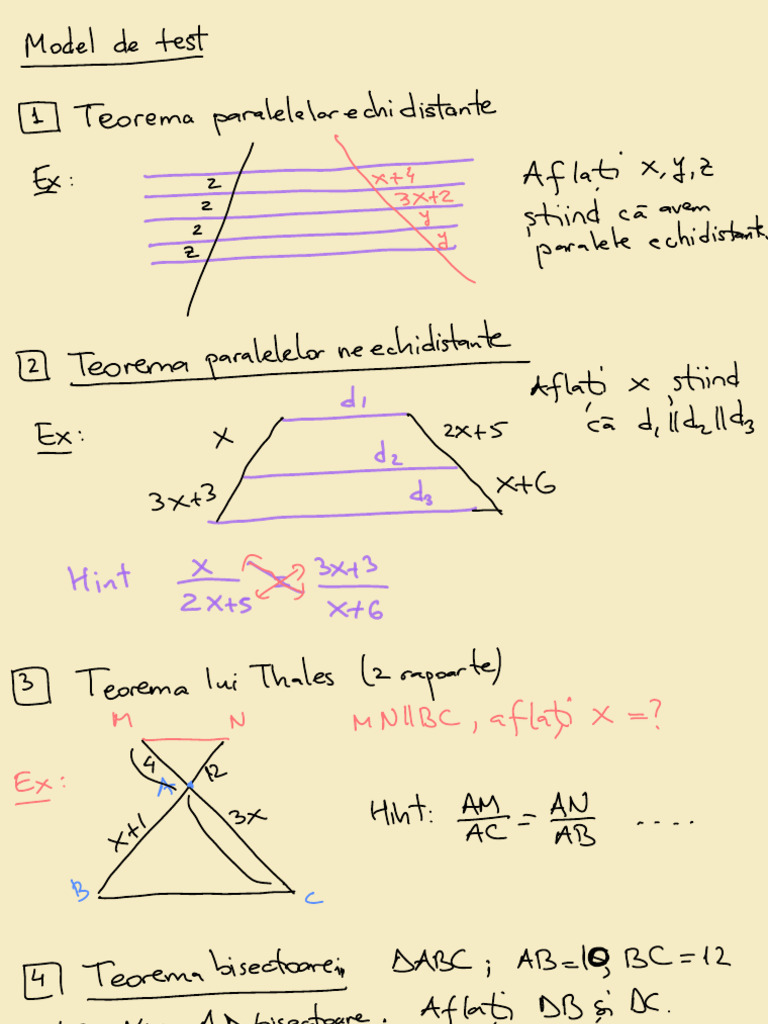 Model de test
1 Teorema paralelelor echidistante
Ex:
2
2
2
z
x+4
3x+2
y
y
Aflați x, y, z
știind că avem
paralele echidistante
2 Teorema paralelelor neechidistante
Ex:
d1
x
2x+5
d2
3x+3
d3
x+6
Aflați x știind
că d1||d2||d3
Hint x/2x+5 3x+3/x+6
3 Teorema lui Thales (2 rapoarte)
Ex:
M N
4 12
A
x+1 3x
B C
MN||BC, aflați x=?
Hint: AM/AC = AN/AB ....
4 Teorema bisectoarei ΔABC; AB=10, BC=12
AD bisectoare. Aflați DB și DC.